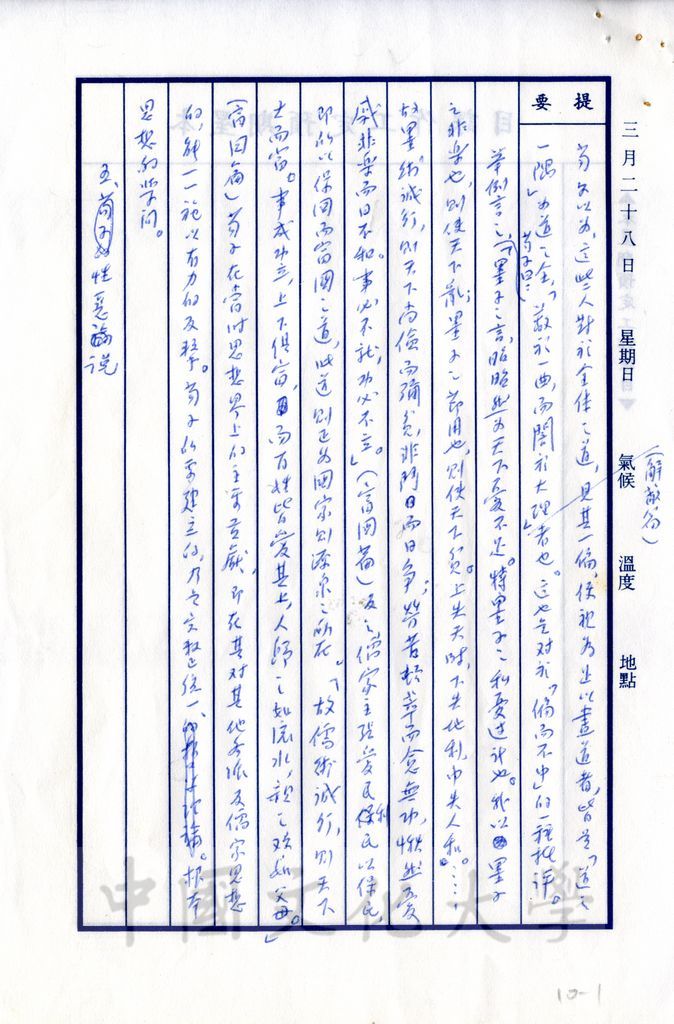 三月二十八日 星期日 氣候 溫度 地點
提要
(解蔽篇)
荀子以為,這些人對於全体之道,見其一偏,便視為足以盡道者,皆是「道之
一隅」為道之全,「蔽於一曲,而闇於大理」者也。這也是对於「偏而不中」的一種批評。
舉例言之,荀子曰:「墨子之言,昭昭然為天下憂不足。特墨子之私憂過計也。我以墨子
之非樂也,則使天下亂;墨子之節用也,則使天下貧。上失天時,下失地利,中失人和。……
故墨術誠行,則天下尚儉而彌貧,非鬥而日爭,勞苦頓萃而愈無功,愀然憂
戚非樂而日不和。事必不就,功必不立。」(富國篇)反之儒家主張愛民利民以保民,
即所以保國而富國之道,此道則正為國家財源泉之所在。「故儒術誠行,則天下
大而富。事成功立,上下俱富,而百姓皆愛其上,人歸之如流水,親之歡如父母。」
(富國篇)荀子在當時思想界上的主要貢獻,即在其对其他各派及儒家思想
的,能一一施以有力的反擊。荀子所要建立的,乃定於正統一的 根本
思想的学问。
五、荀子的性惡論說
10-1
中國文化大學